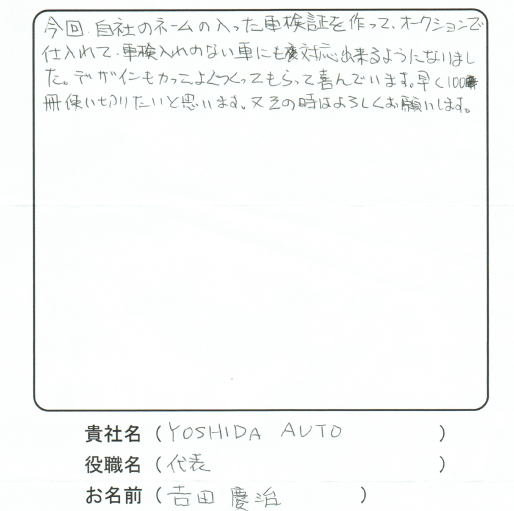 今回、自社のネームの入った車検証を作って、オークションで
仕入れて、車検入れのない車にも対応出来るようになりまし
た。デザインもカッコよくつくってもらって喜んでいます。早く100
冊使い切りたいと思います。又その時はよろしくお願いします。
貴社名(YOSHIDA AUTO)
役職名(代表)
お名前(吉田 慶治)